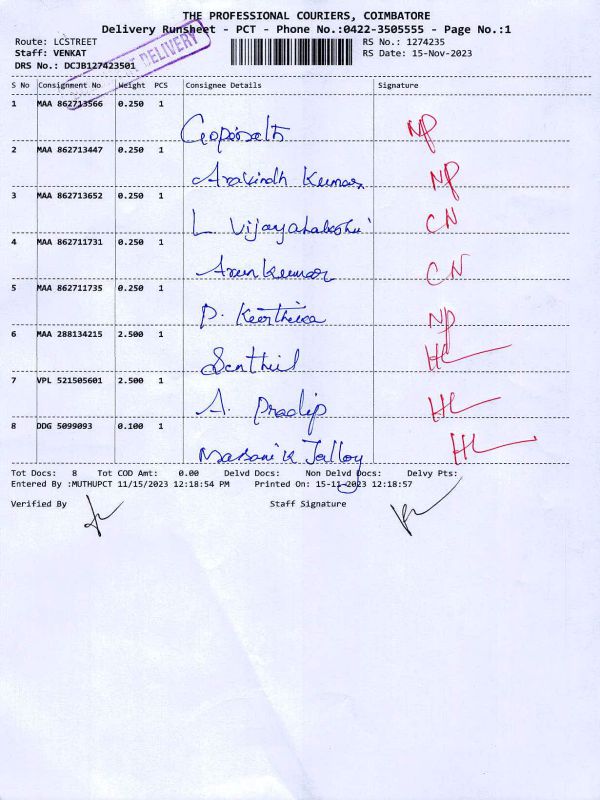 THE PROFESSIONAL COURIERS, COIMBATORE
Delivery Runsheet - PCT - Phone No.:0422-3505555 - Page No.:1
Route: LCSTREET RS No.: 1274235
Staff: VENKAT RS Date: 15-Nov-2023
DRS No.: DCJB127423501
DELIVERY
S No Consignment No Weight PCS Consignee Details Signature
1 MAA 862713566 0.250 1 NP
2 MAA 862713447 0.250 1 Aravindh Kumar NP
3 MAA 862713652 0.250 1 L CN
4 MAA 862711731 0.250 1 Arun kumar CN
5 MAA 862711735 0.250 1 P. Keerthika NP
6 MAA 288134215 2.500 1 Senthil HL
7 VPL 521505601 2.500 1 A. Pradip HL
8 DDG 5099093 0.100 1 HL
Tot Docs: 8 Tot COD Amt: 0.00 Delvd Docs: Non Delvd Docs: Delvy Pts:
Entered By :MUTHUPCT 11/15/2023 12:18:54 PM Printed On: 15-11-2023 12:18:57
Verified By Staff Signature